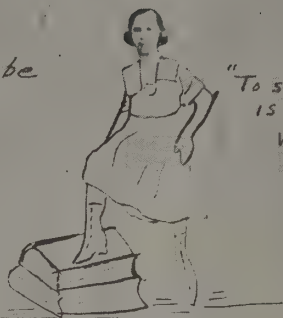 be
"To s
is
W